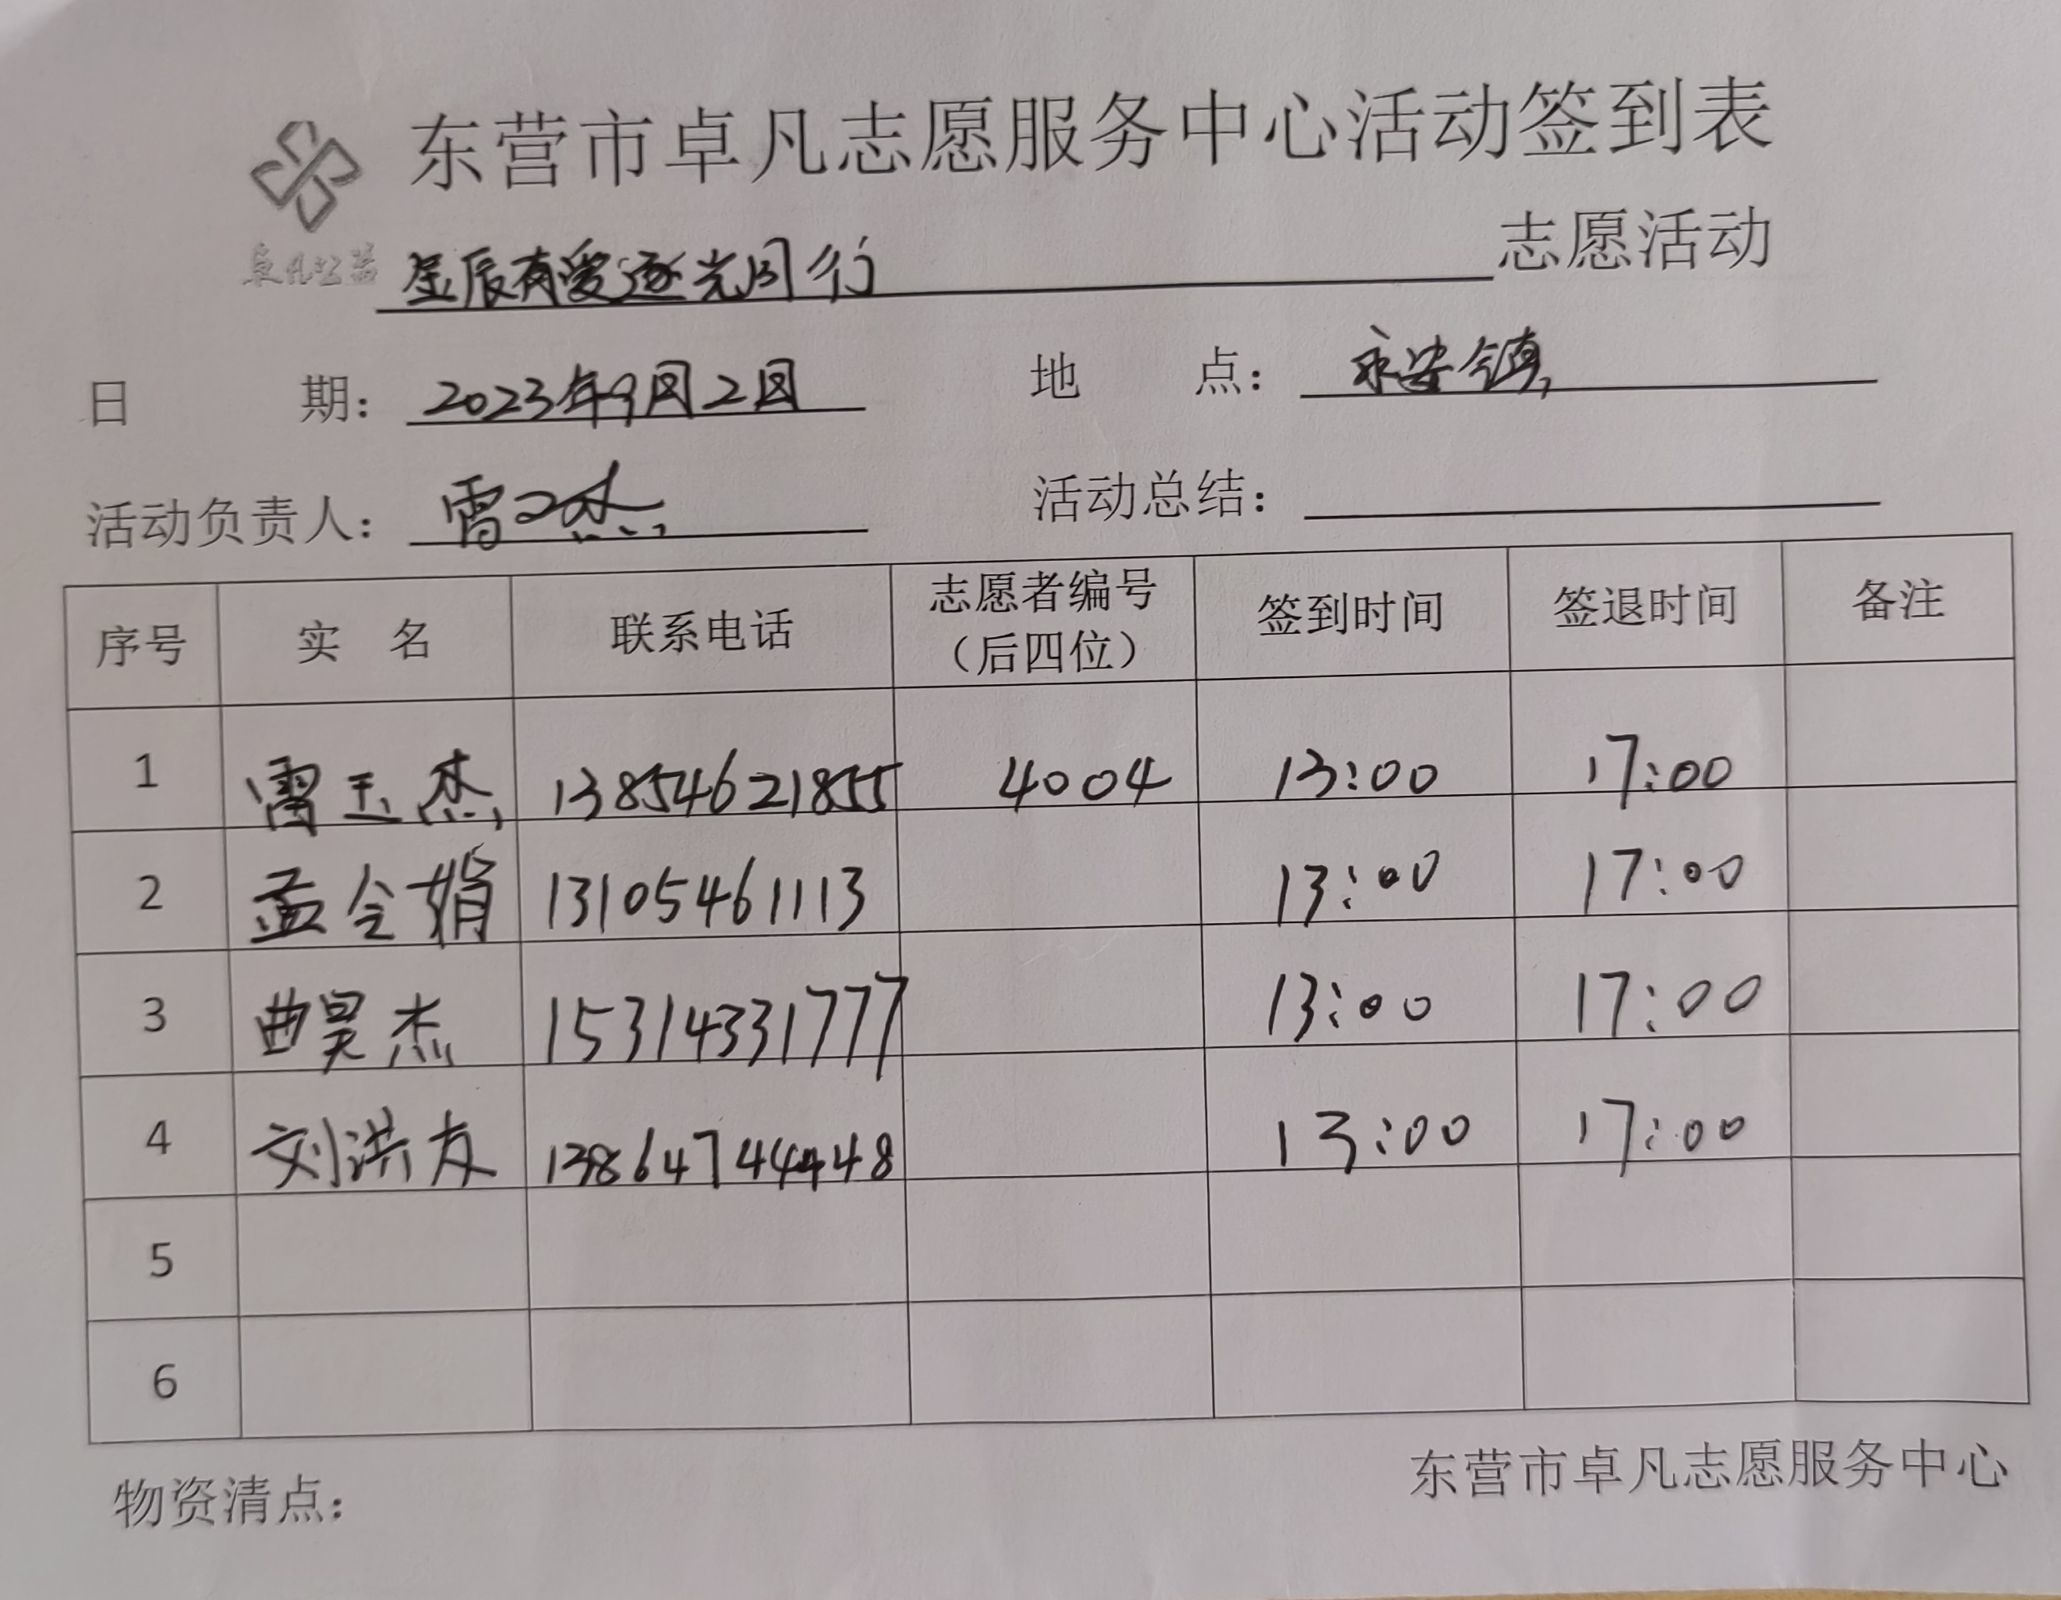 东营市卓凡志愿服务中心活动签到表
卓凡公益
星辰有爱逐光同行 志愿活动
日期：2023年9月2日 地点：永安镇
活动负责人：雷玉杰 活动总结：
序号 实名 联系电话 志愿者编号（后四位） 签到时间 签退时间 备注
1 雷玉杰 13854621855 4004 13:00 17:00
2 孟令娟 13105461113 13:00 17:00
3 曲昊杰 15314331777 13:00 17:00
4 刘洪友 13864744448 13:00 17:00
5
6
物资清点： 东营市卓凡志愿服务中心